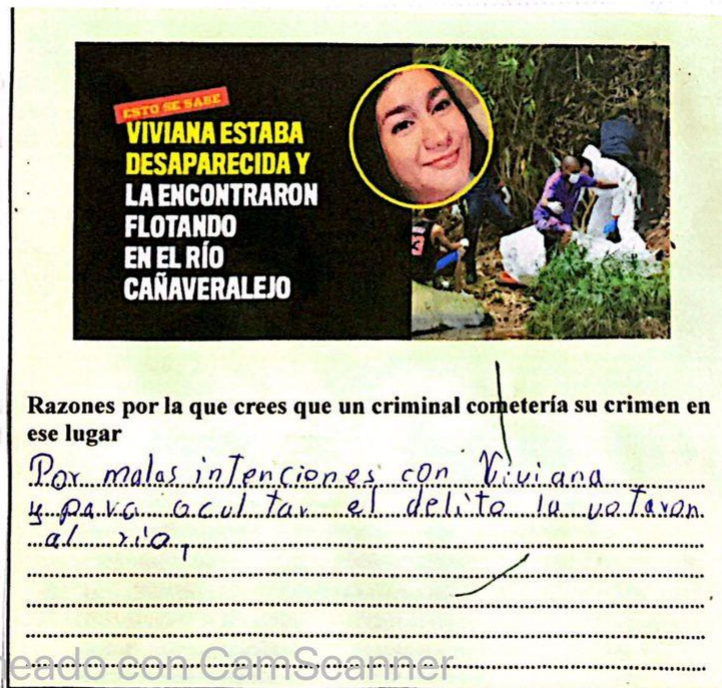 ESTO SE SABE
VIVIANA ESTABA
DESAPARECIDA Y
LA ENCONTRARON
FLOTANDO
EN EL RÍO
CAÑAVERALEJO
Razones por la que crees que un criminal cometería su crimen en
ese lugar
Por malas intenciones con Viviana
y para ocultar el delito la votaron
al río,
neado con CamScanner